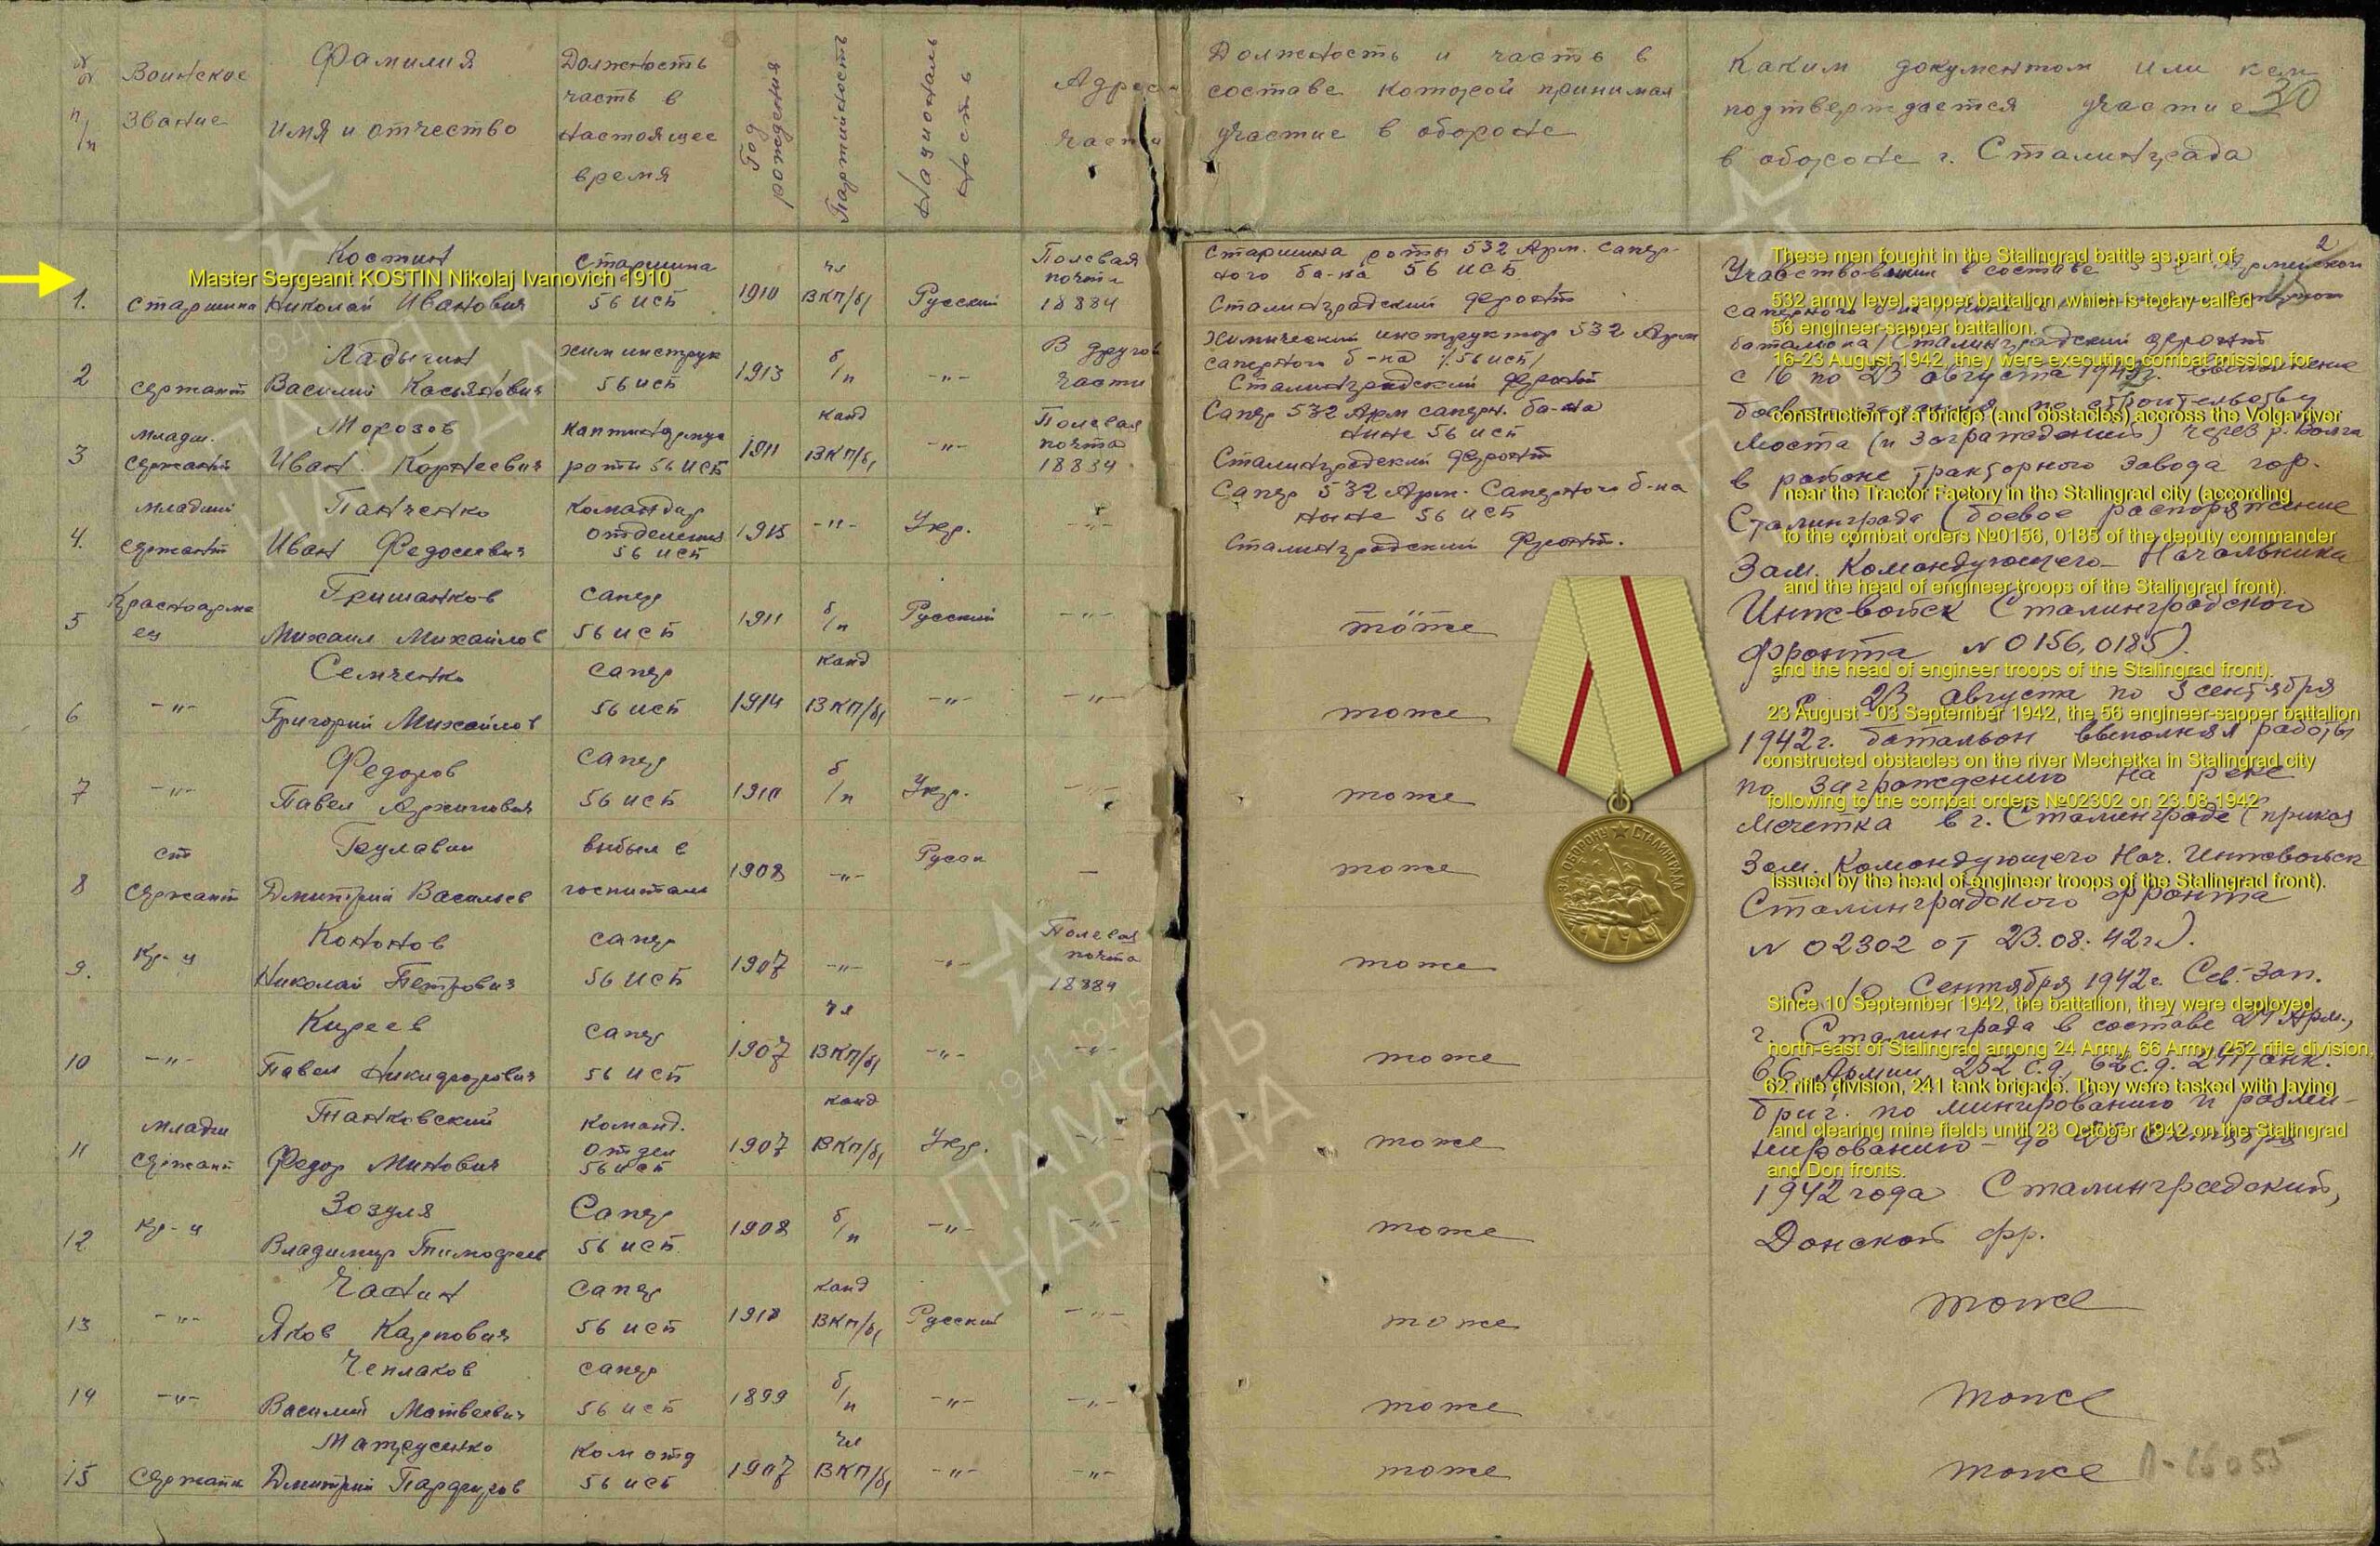 №№ п/п
Воинское звание
Фамилия имя и отчество
Должность часть в настоящее время
Год рождения
Партийность
Национальность
Адрес части
Должность и часть в составе которой принимал участие в обороне
Каким документом или кем подтверждается участие в обороне г. Сталинграда
30
2
Master Sergeant KOSTIN Nikolaj Ivanovich 1910
1. старшина Костин Николай Иванович старшина 56 исб 1910 чл ВКП/б/ Русский Полевая почта 18884
Старшина роты 532 Арм. сапер-
ного ба-на 56 исб
Сталинградский фронт
2 сержант Ладыгин Василий Касьянович хим инструк 56 исб 1913 б/п -"- В друго части
Химический инструктор 532 Арм
саперного б-на /56 исб/
Сталинградский фронт
3 младш. сержант Морозов Иван Корнеевич каптинармус роты 56 исб 1911 канд ВКП/б/ -"- Полевая почта 18884
Сапер 532 Арм саперн. ба-на
ныне 56 исб
Сталинградский фронт
4. младший сержант Панченко Иван Федосеевич командир отделения 56 исб 1915 -"- Укр. -"-
Сапер 532 Арм. Саперного б-на
ныне 56 исб
Сталинградский фронт.
5 Красноармеец Гришанков Михаил Михайлов сапер 56 исб 1911 б/п Русский -"- тоже
6 -"- Семченко Григорий Михайлов сапер 56 исб 1914 канд ВКП/б/ -"- -"- тоже
7 -"- Федоров Павел сапер 56 исб 1910 б/п Укр. -"- тоже
8 ст сержант Дмитрий Васильев выбыл в госпиталь 1908 -"- — тоже
9. кр-ц Кононов Николай Петрович сапер 56 исб 1907 -"- -"- Полевая почта 18884 тоже
10 -"- Киреев Павел Никифорович сапер 56 исб 1907 чл ВКП/б/ -"- -"- тоже
11 младш сержант Танковский Федор Минович команд. отдел 56 исб 1907 канд ВКП/б/ Укр. -"- тоже
12 кр-ц Зозуля Владимир Тимофеев Сапер 56 исб. 1908 б/п -"- -"- тоже
13 -"- Чанин Яков Карпович сапер 56 исб 1918 канд ВКП/б/ Русский -"- тоже
14 -"- Чеплаков Василий Матвеевич сапер 56 исб 1899 б/п -"- -"- тоже
15 Сержант Матрусенко Дмитрий Парфиров ком отд 56 исб 1907 чл ВКП/б/ -"- -"- тоже
These men fought in the Stalingrad battle as part of
532 army level sapper battalion, which is today called
56 engineer-sapper battalion.
16-23 August 1942, they were executing combat mission for
construction of a bridge (and obstacles) accross the Volga river
near the Tractor Factory in the Stalingrad city (according
to the combat orders №0156, 0185 of the deputy commander
and the head of engineer troops of the Stalingrad front).
and the head of engineer troops of the Stalingrad front).
23 August - 03 September 1942, the 56 engineer-sapper battalion
constructed obstacles on the river Mechetka in Stalingrad city
following to the combat orders №02302 on 23.08.1942
issued by the head of engineer troops of the Stalingrad front).
Since 10 September 1942, the battalion, they were deployed
north-east of Stalingrad among 24 Army, 66 Army, 252 rifle division,
62 rifle division, 241 tank brigade. They were tasked with laying
and clearing mine fields until 28 October 1942 on the Stalingrad
and Don fronts.
Участвовали в составе
батальона / Сталинградский фронт
с 16 по 23 августа 1942г. выполнение
моста (и заграждений) через р. Волга
в районе тракторного завода гор.
Сталинграда (боевое распоряжение
Зам. Командующего Начальника
Инжвойск Сталинградского
фронта N 0156, 0185).
с 23 августа по 3 сентября
1942г. батальон выполнял работы
по заграждению на реке
Мечетка в г. Сталинграде (приказ
Зам. Командующего Нач. Инжвойск
Сталинградского фронта
N 02302 от 23.08.42г.).
С 10 Сентября 1942г. Сев.-Зап.
г. Сталинграда в составе 24 Арм.,
66 Армии, 252 с.д., 62 с.д. 241 танк.
бриг. по минированию и разми-
нированию - до 28 Октября
1942 года Сталинградский,
Донской фр.
тоже
тоже
тоже
ЗА ОБОРОНУ СТАЛИНГРАДА
ПАМЯТЬ НАРОДА
1941-1945
ПАМЯТЬ НАРОДА